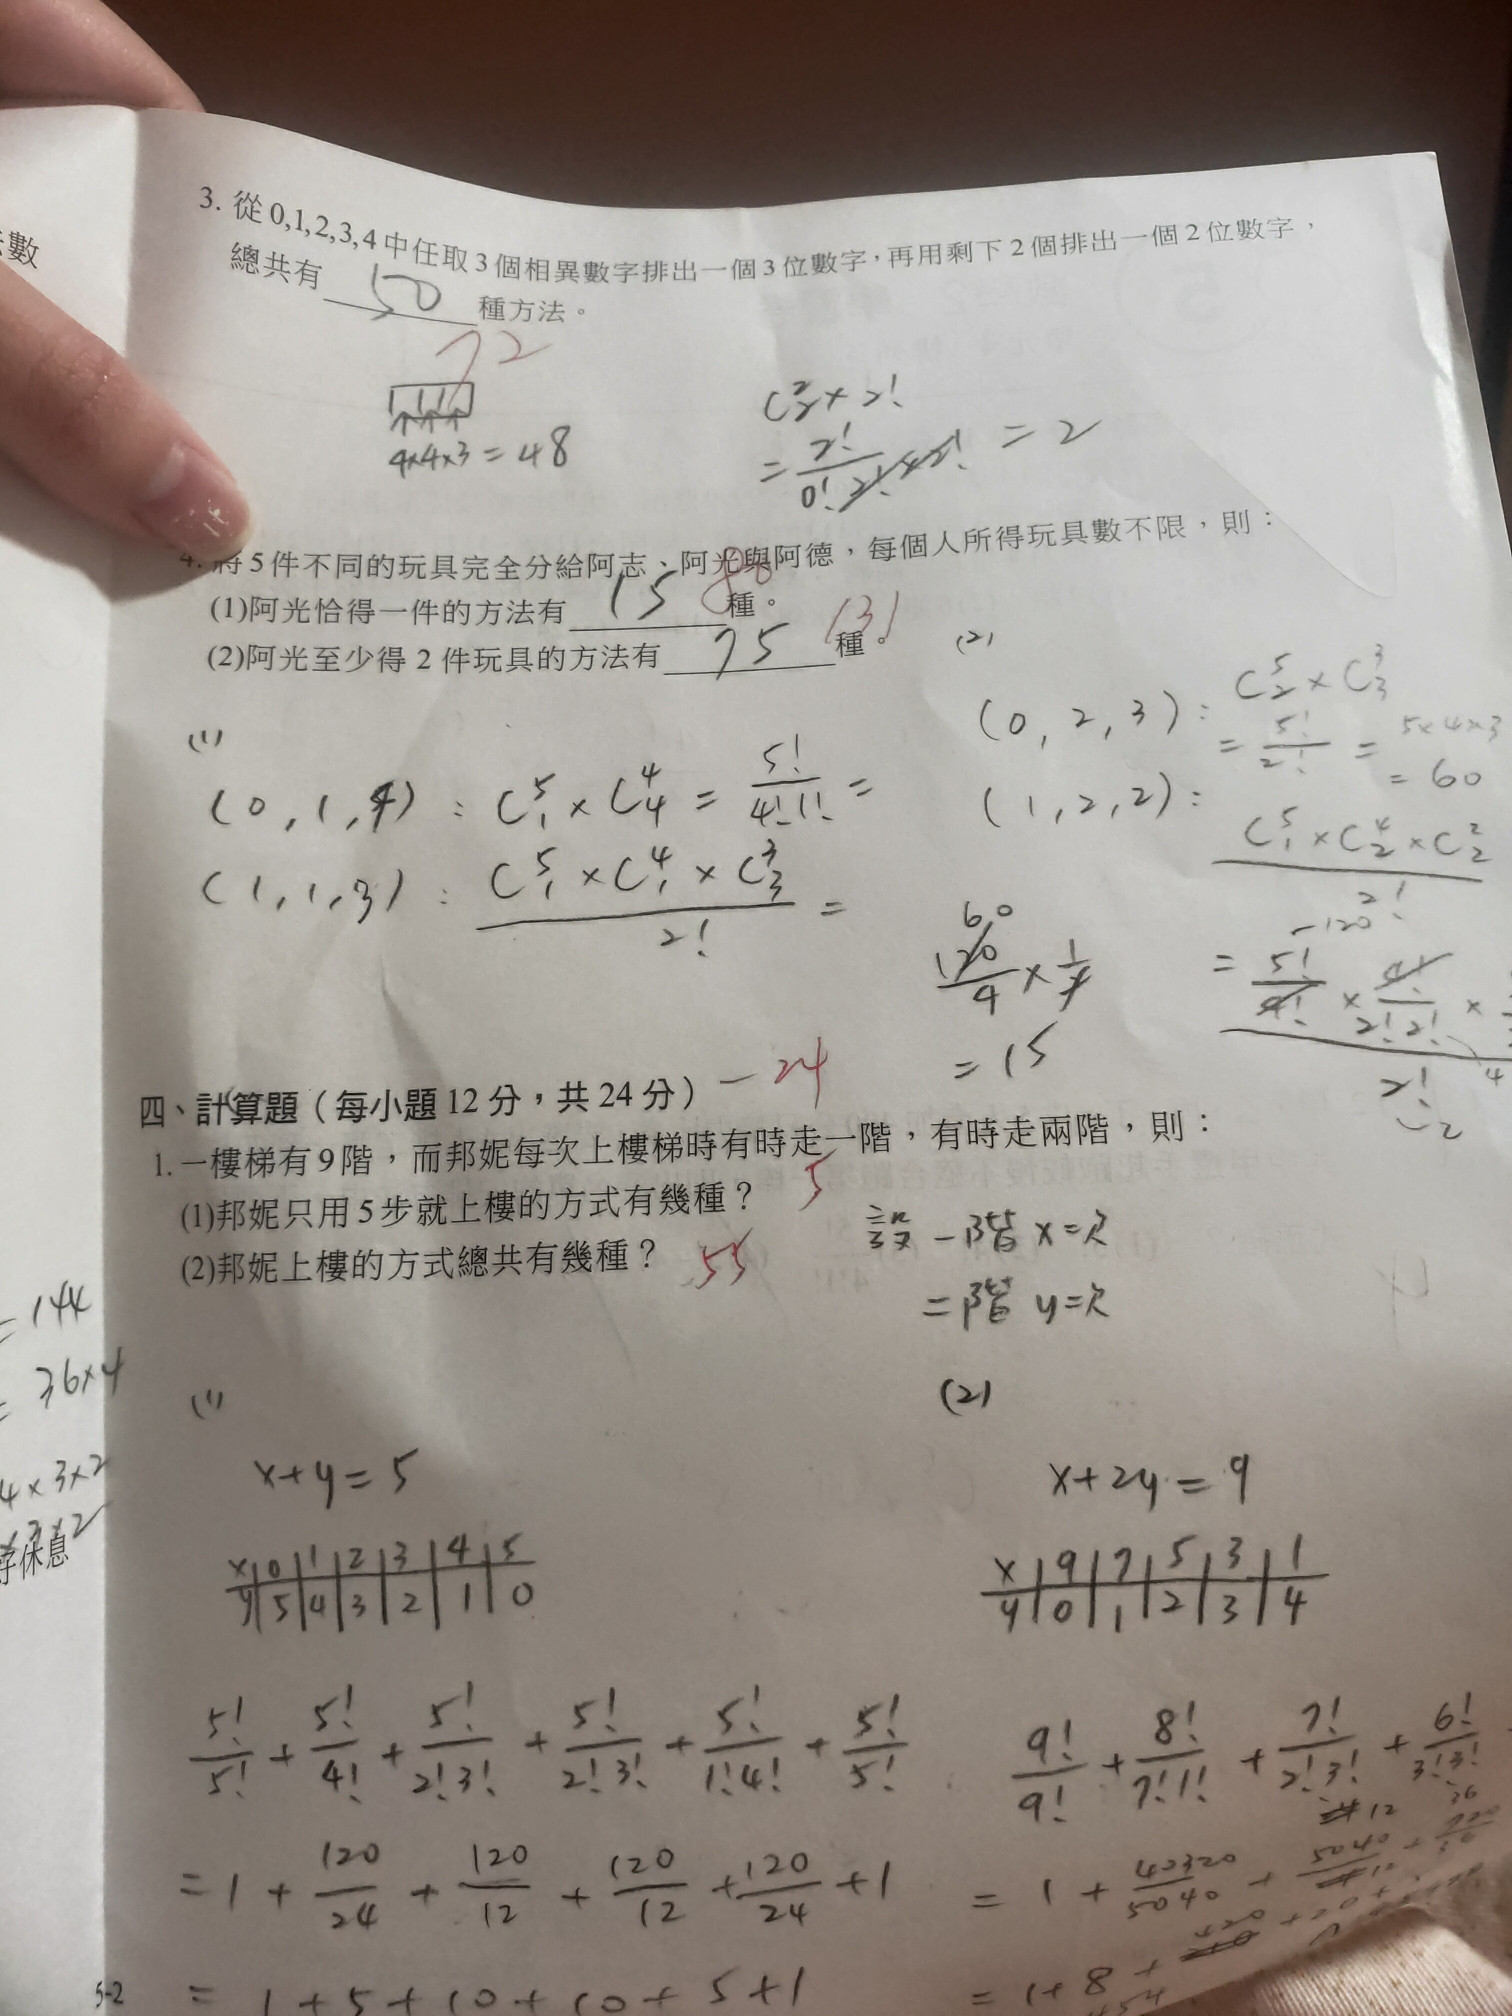 數
3. 從0,1,2,3,4中任取3個相異數字排出一個3位數字，再用剩下2個排出一個2位數字，
總共有 50 種方法。
72
4×4×3 = 48
C²₂ × 2!
= 2!/0!2! × 2! = 2
4. 將5件不同的玩具完全分給阿志、阿光與阿德，每個人所得玩具數不限，則：
(1)阿光恰得一件的方法有 15 種。 80
(2)阿光至少得 2 件玩具的方法有 75 種。 131
(1)
(0,1,4) : C⁵₁ × C⁴₄ = 5!/4!1! =
(1,1,3) : C⁵₁ × C⁴₁ × C³₃ / 2! =
(2)
(0,2,3) : C⁵₂ × C³₃
= 5!/2! = 5×4×3
= 60
(1,2,2) : C⁵₁ × C⁴₂ × C²₂ / 2!
120
= 5!/4! × 4!/2!2! ×
2!
2
4
60
120/4 × 1/2
= 15
四、計算題（每小題12分，共24分） -24
1. 一樓梯有9階，而邦妮每次上樓梯時有時走一階，有時走兩階，則：
(1)邦妮只用5步就上樓的方式有幾種？ 5
(2)邦妮上樓的方式總共有幾種？ 55
設一階 x=次
二階 y=次
= 144
= 36×4
4×3×2
休息
(1)
x+y=5
x 0 1 2 3 4 5
y 5 4 3 2 1 0
5!/5! + 5!/4! + 5!/2!3! + 5!/2!3! + 5!/1!4! + 5!/5!
= 1 + 120/24 + 120/12 + 120/12 + 120/24 + 1
= 1 + 5 + 10 + 10 + 5 + 1
(2)
x+2y=9
x 9 7 5 3 1
y 0 1 2 3 4
9!/9! + 8!/7!1! + 7!/2!3! + 6!/3!3!
= 1 + 40320/5040 + 5040/12 + 720/36
= 1 + 8 +
5-2